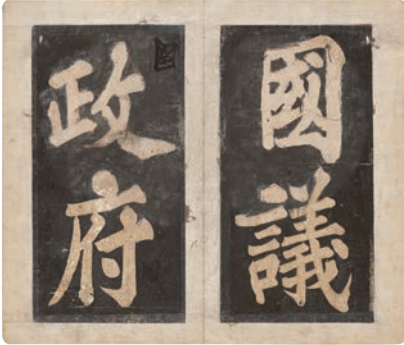 國議
政府